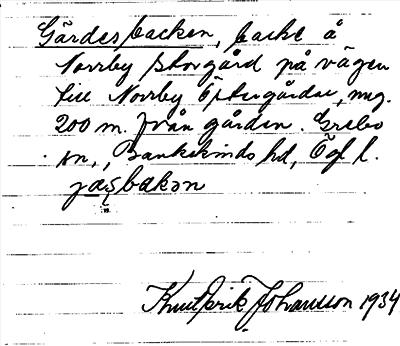 Gärdesbacken, backe å
Norrby storgård på vägen
till Norrby Östergårdar, ung.
200 m. från gården. Grebo
sn., Bankekinds hd, Ögl.
jæṣbakən
Knut Erik Johansson 1934